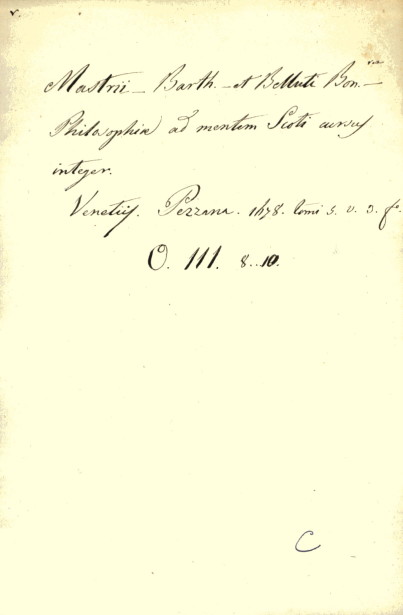 v.
Mastrii - Barth. - et Belluti Bon.re -
Philosophiæ ad mentem Scoti cursus
integer.
Venetiis. Pezzana. 1678. tomi 5. v. 3. fo.
O. III. 8..10.
C